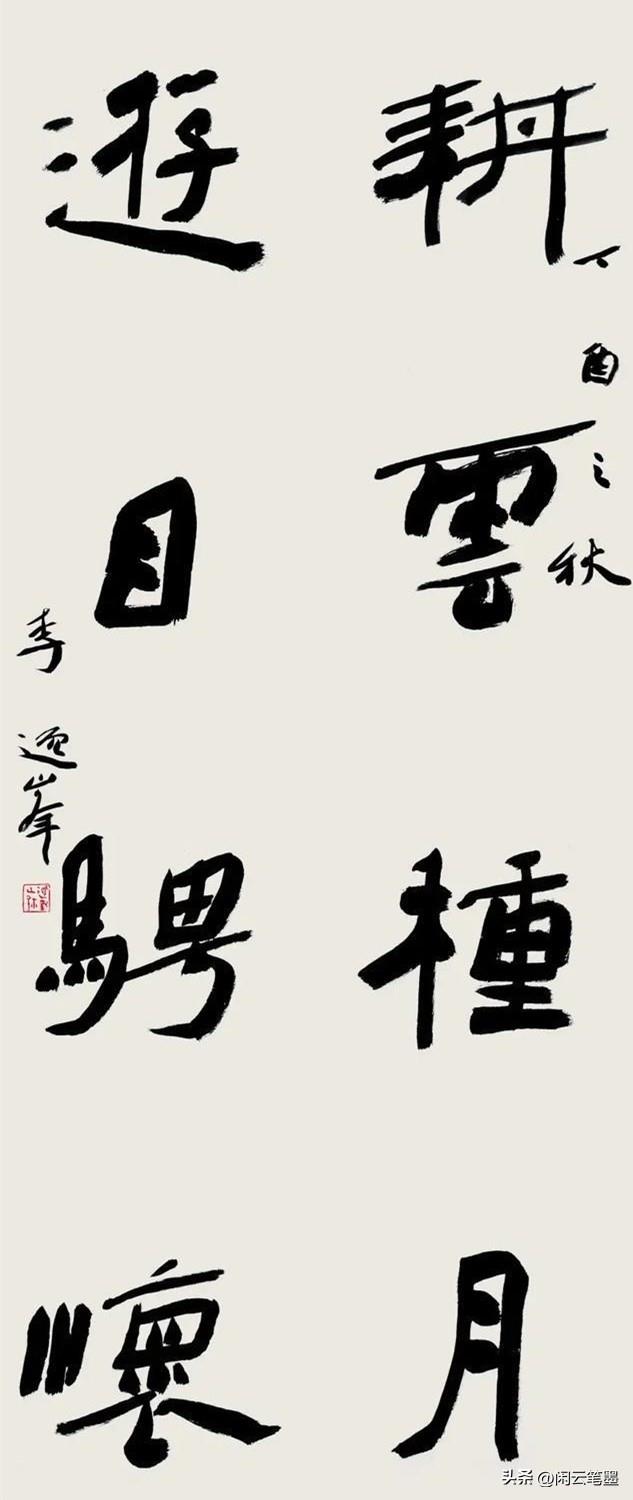 耕雲種月
遊目騁懷
丁酉之秋
李逸峯
头条 @闲云笔墨